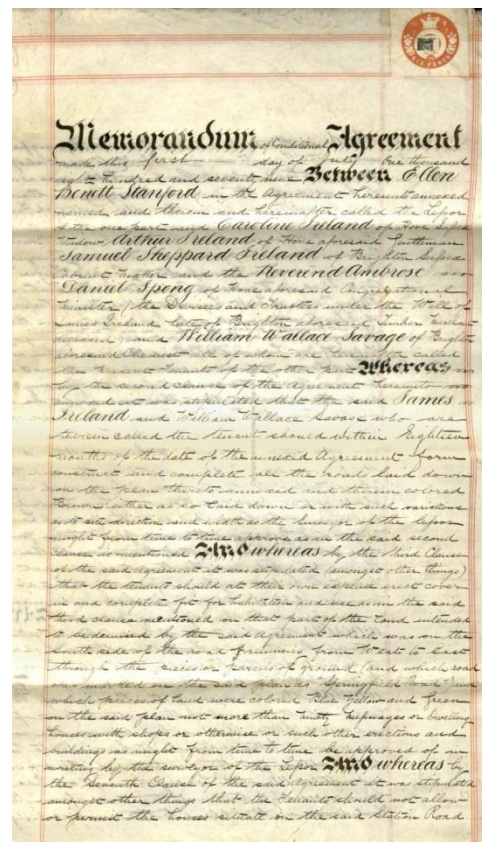 SIX PENCE
Memorandum of Conditional Agreement
made this first day of July One thousand
eight hundred and seventy nine Between Ellen
Benett Stanford in the Agreement hereunto annexed
named and therein and hereinafter called the Lessor
of the one part and Caroline Ireland of Hove Sussex
Widow Arthur Ireland of Hove aforesaid Gentleman
Samuel Sheppard Ireland of Brighton Sussex
Cabinet Maker and the Reverend Ambrose
Daniel Spong of Hove aforesaid Congregational
Minister (the Devisees and Trustees under the Will of
James Ireland late of Brighton aforesaid Timber Merchant
deceased) and William Wallace Savage of Brighton
aforesaid Chemist all of whom are hereinafter called
the present Tenants of the other part Whereas
by the second clause of the Agreement hereunto
annexed it was stipulated that the said James
Ireland and William Wallace Savage who are
therein called the tenants should within Eighteen
months of the date of the annexed Agreement form
construct and complete all the road laid down
on the plan thereto annexed and therein colored
Brown either as so laid down or with such variations
as to site direction and width as the Surveyor of the lessor
might from time to time approve as in the said second
clause is mentioned And whereas by the third Clause
of the said Agreement it was stipulated (amongst other things)
that the tenants should at their own expense erect cover
in and complete fit for habitation and use as in the said
third clause mentioned on that part of the land intended
to be demised by the said Agreement which was on the
South side of the road running from West to East
through the pieces or parcels of ground (and which road
was marked on the said plan as "Springfield Road") and
which pieces of land were colored Blue Yellow and Green
on the said plan not more than Ninety Messuages or Dwelling
houses with shops or otherwise or such other erections and
buildings as might from time to time be approved of in
writing by the surveyor of the Lessor And whereas by
the Seventh Clause of the said Agreement it was stipulated
amongst other things that the Tenants should not allow
or permit the houses situate in the said Station Road